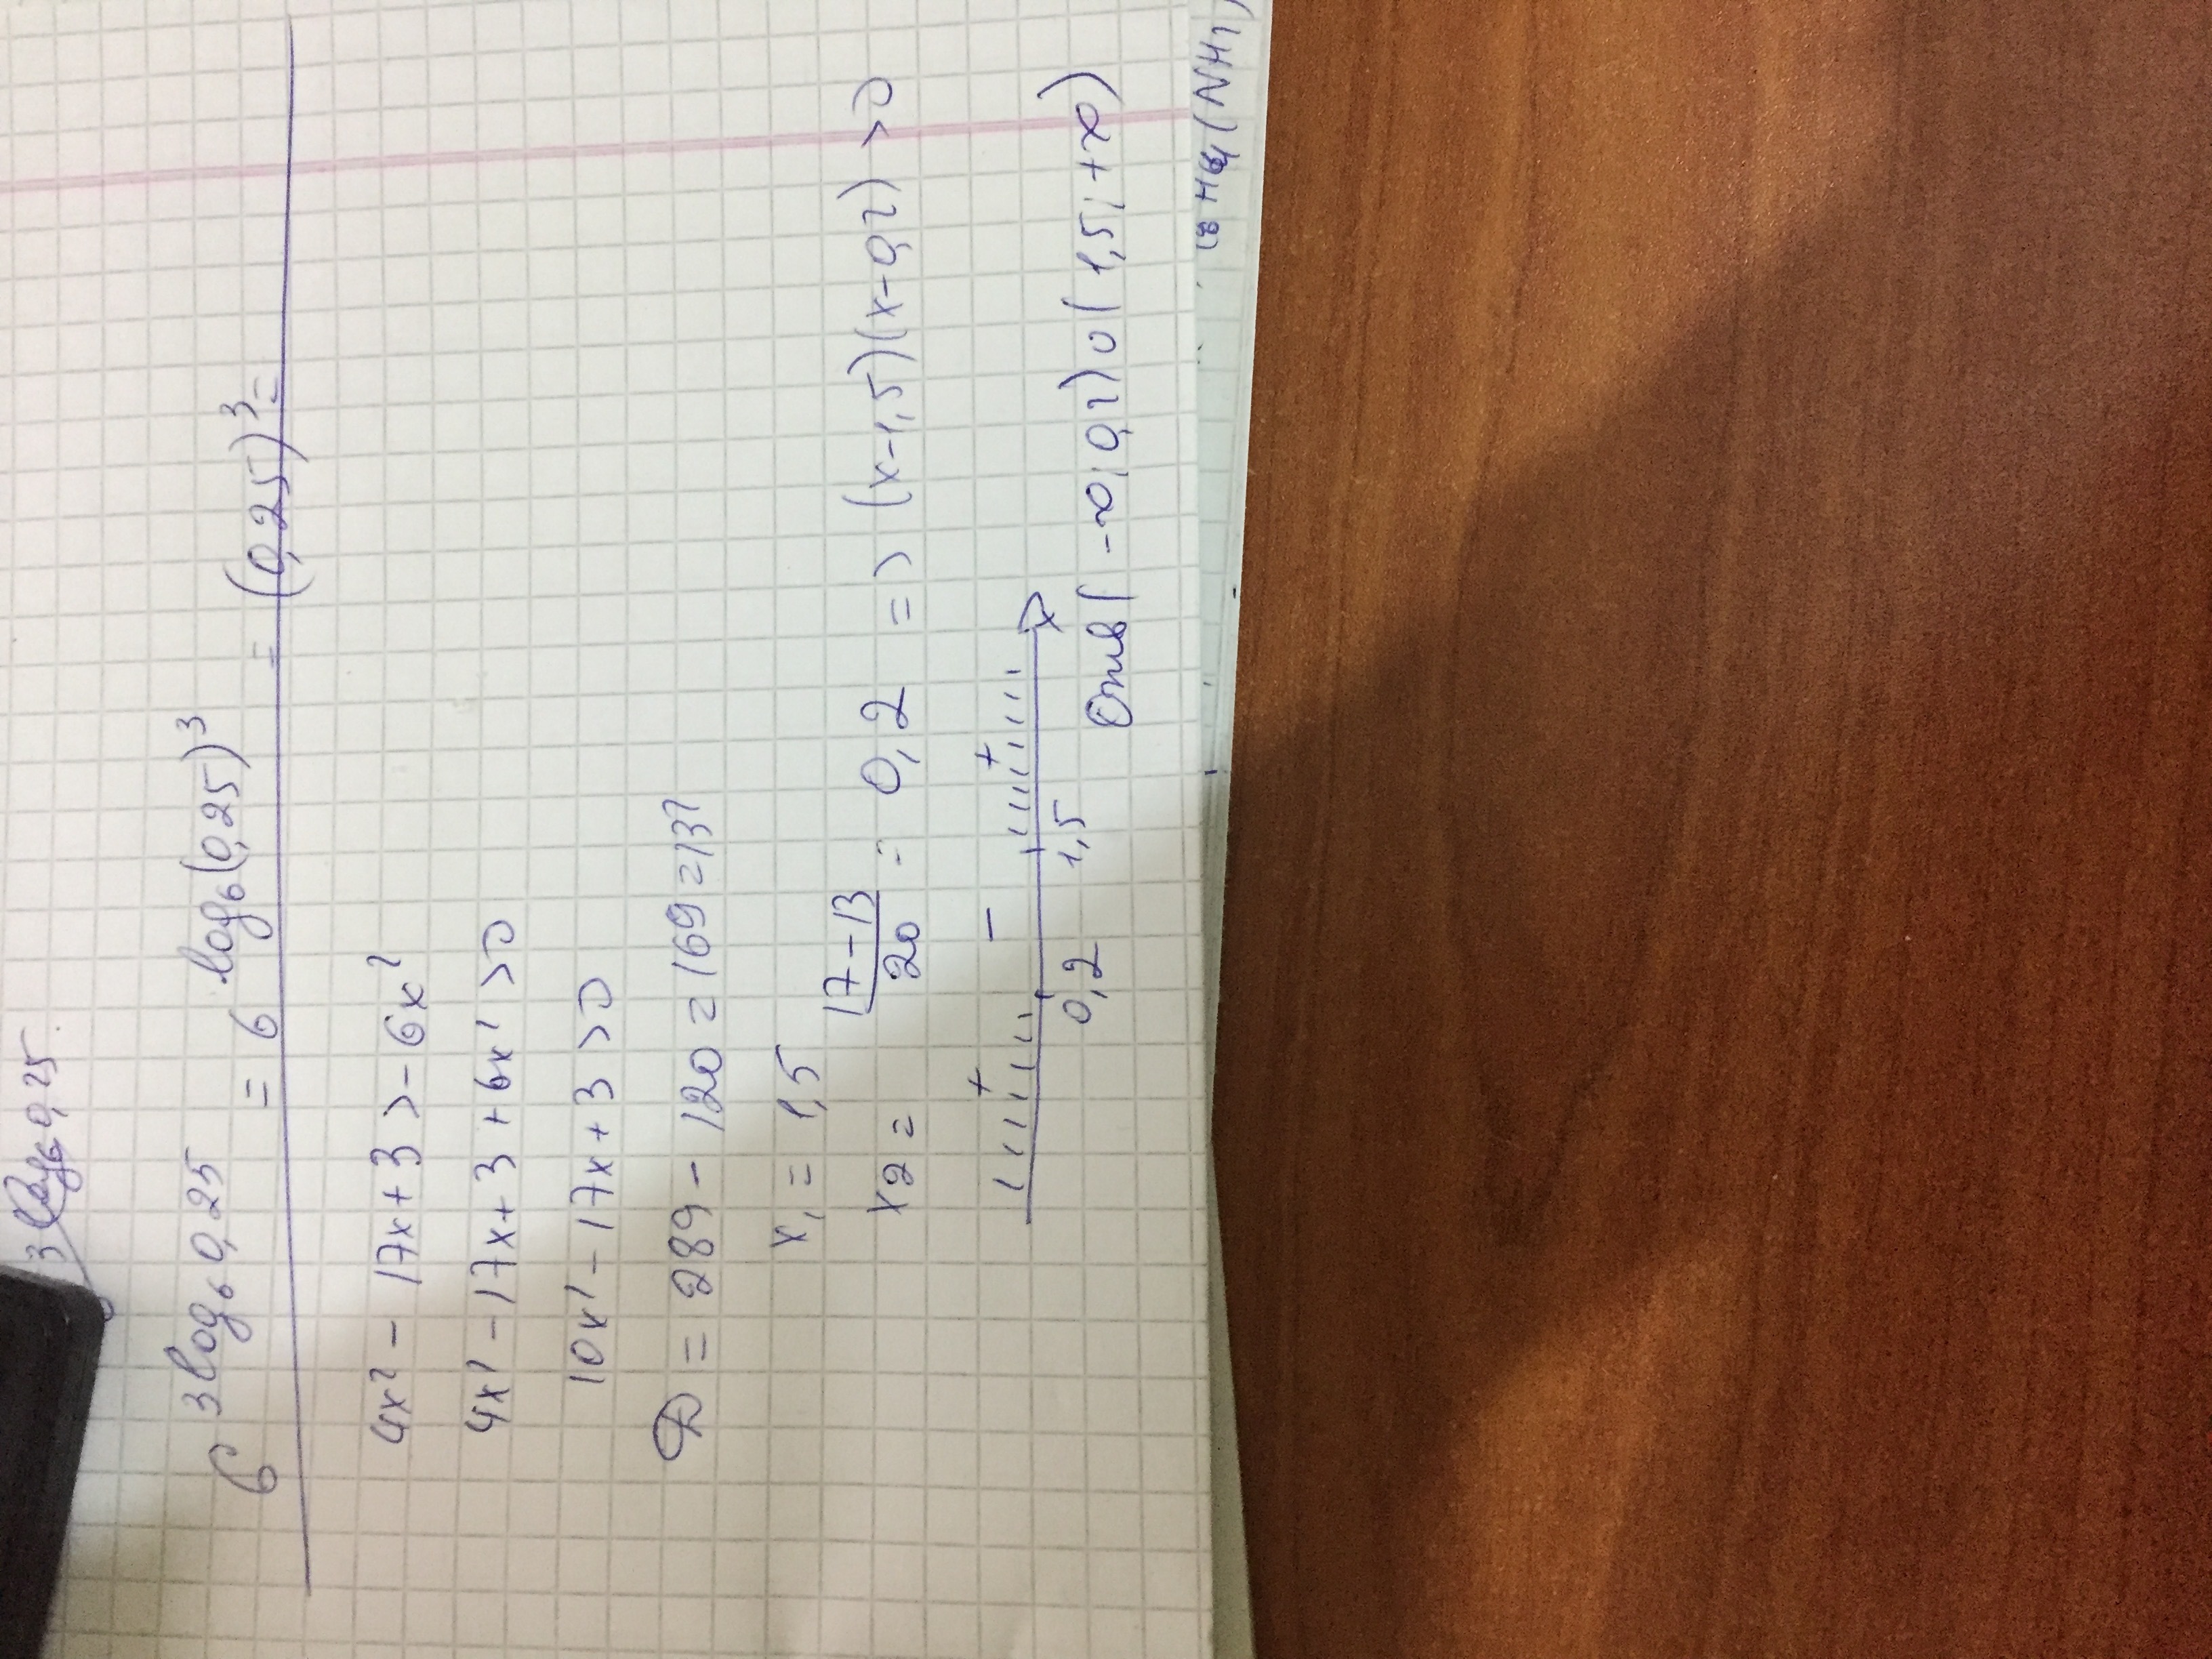 3log₆0,25
6^(3log₆0,25) = 6^(log₆(0,25)³) = (0,25)³=
4x² - 17x+3 >-6x²
4x² -17x+3 +6x² >0
10x² - 17x+3 >0
D = 289 - 120 = 169 = 13²
x₁ = 1,5
x₂ = (17-13)/20 = 0,2 => (x-1,5)(x-0,2) >0
+ - +
0,2 1,5 x
Отв (-∞; 0,2) ∪ (1,5; +∞)